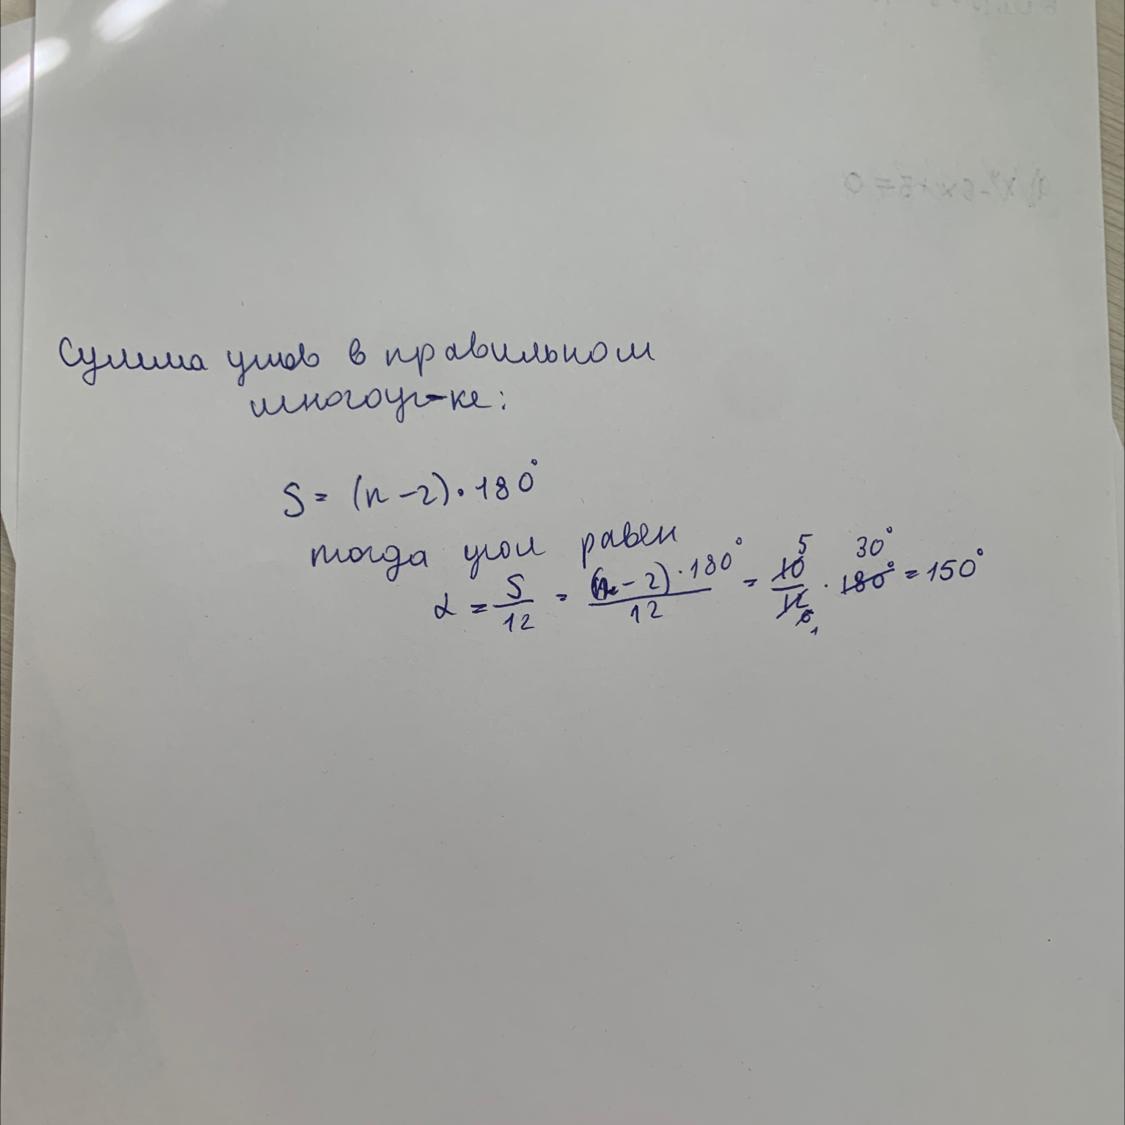 Сумма углов в правильном
многоуг-ке:
S = (n - 2) · 180°
тогда угол равен
α = S/12 = (n - 2) · 180°/12 = 10/12 · 180° = 150°
5 30°
6 1